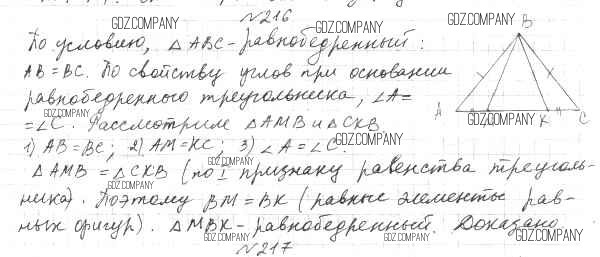 №216
GDZ.COMPANY GDZ.COMPANY GDZ.COMPANY
По условию, △ABC - равнобедренный:
AB = BC. По свойству углов при основании
равнобедренного треугольника, ∠A =
GDZ.COMPANY
= ∠C. Рассмотрим △AMB и △CKB
1) AB = BC; 2) AM = KC; 3) ∠A = ∠C.
GDZ.COMPANY
GDZ.COMPANY
△AMB = △CKB (по I признаку равенства треуголь-
GDZ.COMPANY
ника). Поэтому BM = BK (равные элементы рав-
ных фигур). △MBK - равнобедренный. Доказано
GDZ.COMPANY GDZ.COMPANY GDZ.COMPANY
№217
B
A K C
GDZ.COMPANY